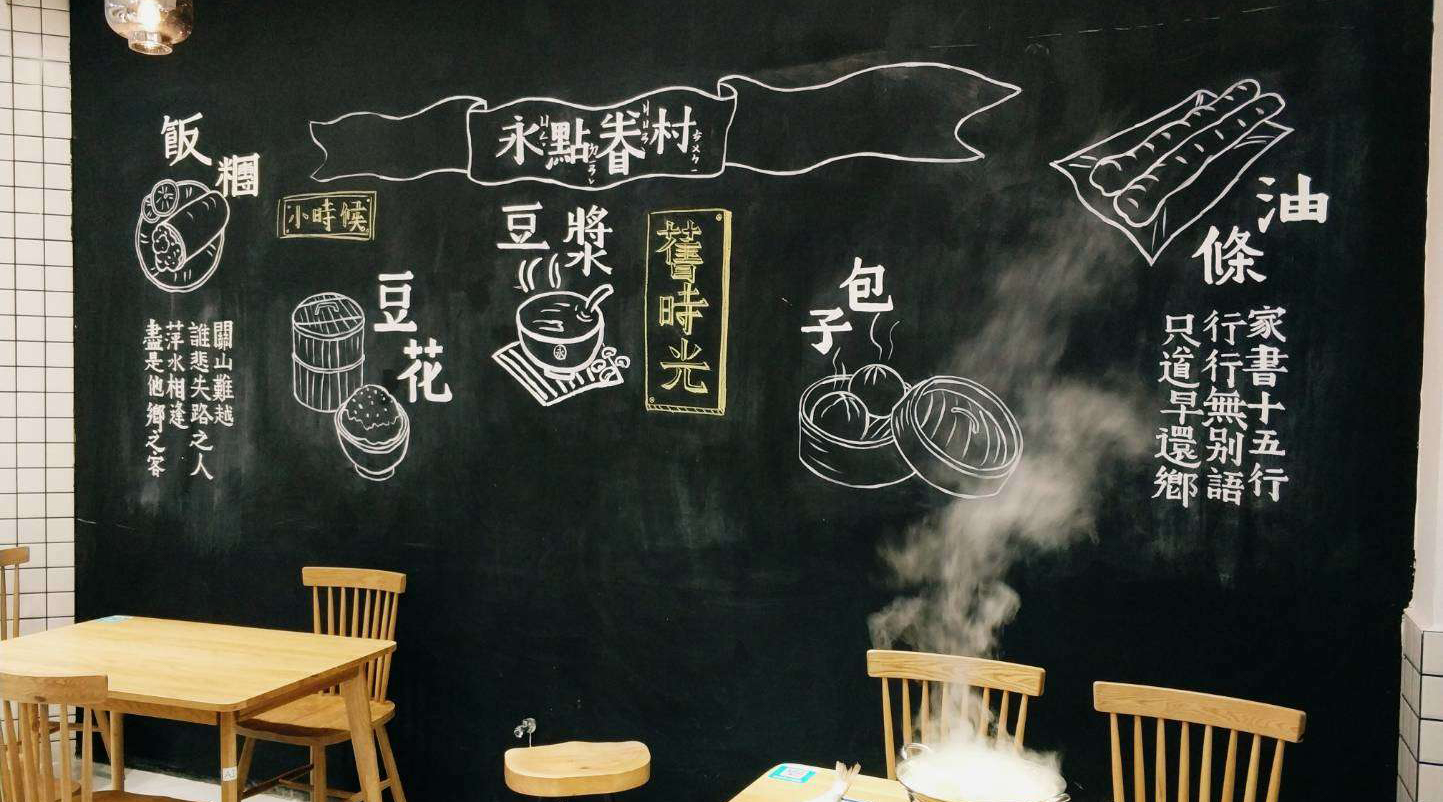 永點眷村
ㄩㄥˇ ㄉㄧㄢˇ ㄐㄩㄢˋ ㄘㄨㄣ
飯糰
關山難越
誰悲失路之人
萍水相逢
盡是他鄉之客
小時候
豆花
豆漿
永
舊時光
包子
油條
家書十五行
行行無別語
只道早還鄉